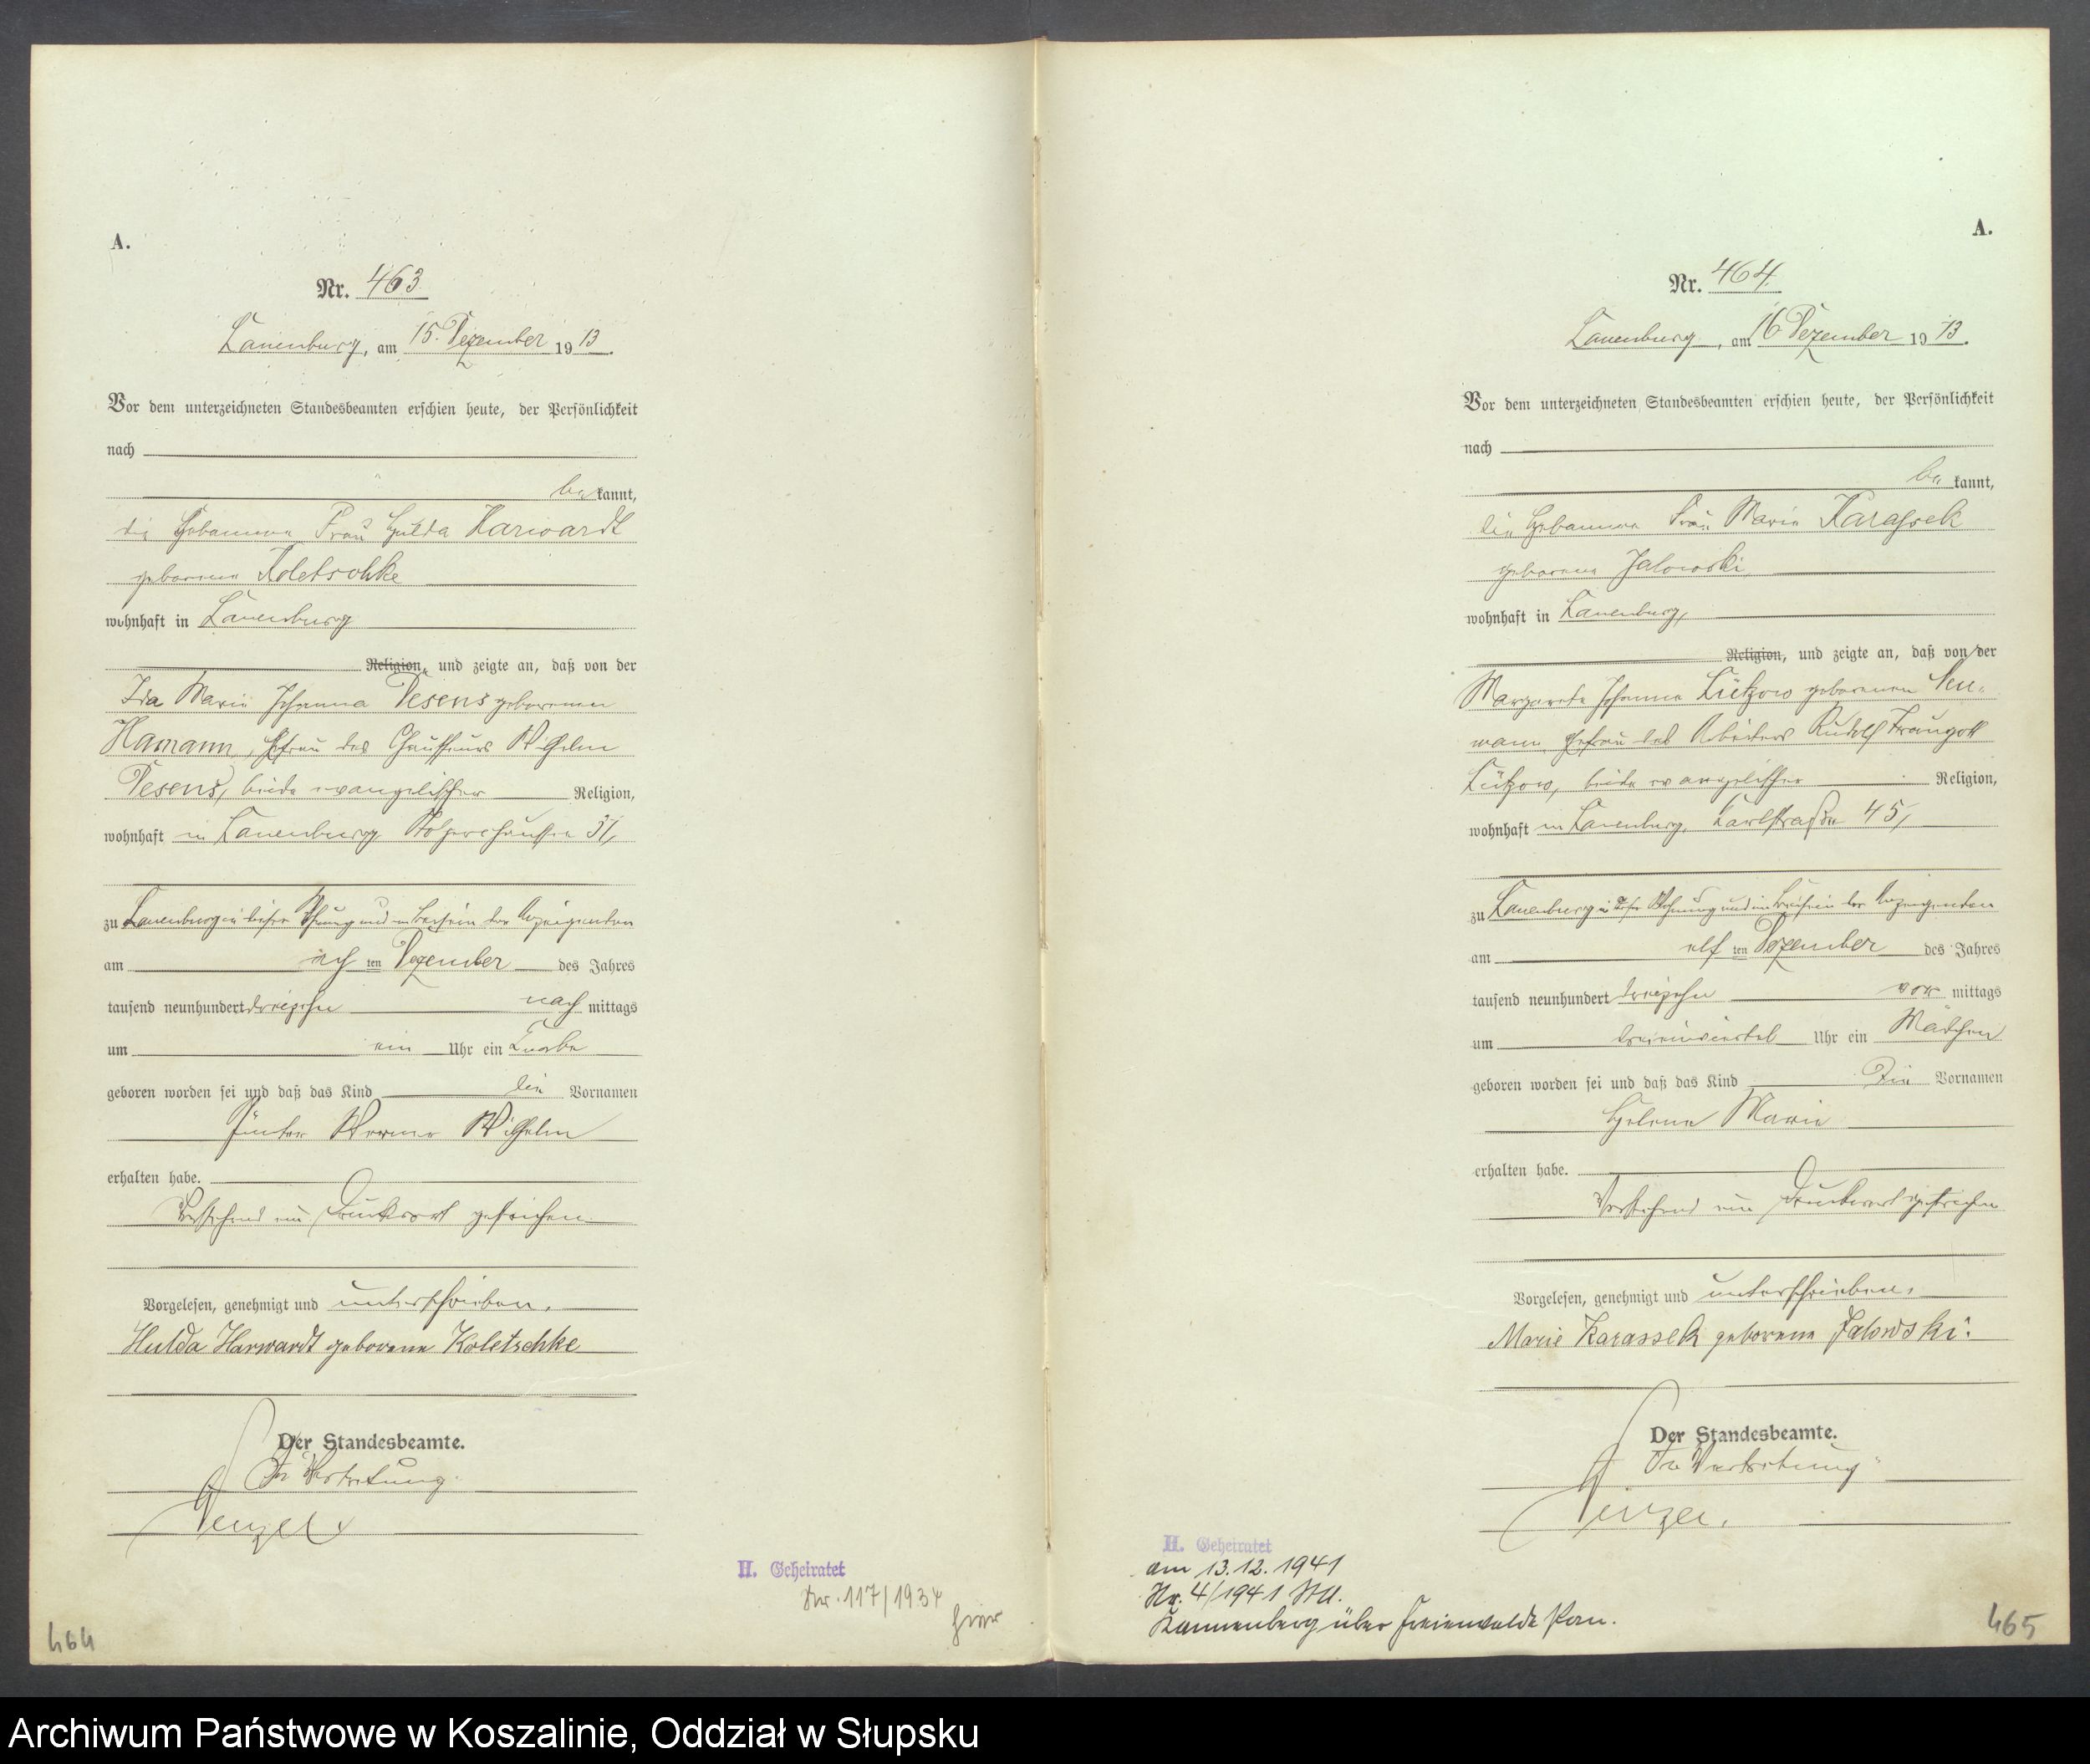 A.
Nr. 463
Lauenburg, am 15. Dezember 1913.
Vor dem unterzeichneten Standesbeamten erschien heute, der Persönlichkeit
nach
be kannt,
die Hebamme Frau Hulda Harwardt
geborene Koletschke
wohnhaft in Lauenburg
Religion, und zeigte an, daß von der
Ida Marie Johanna Desens geborenen
Hamann, Ehefrau des Chauffeurs Wilhelm
Desens, beide evangelischer Religion,
wohnhaft in Lauenburg
zu Lauenburg in dieser Wohnung und in Beisein der Anzeigenden
am ach ten Dezember des Jahres
tausend neunhundert dreizehn nach mittags
um ein Uhr ein Knabe
geboren worden sei und daß das Kind die Vornamen
Günter Werner Wilhelm
erhalten habe.
Vorstehend ein Druckwort gestrichen.
Vorgelesen, genehmigt und unterschrieben.
Hulda Harwardt geborene Koletschke
Der Standesbeamte.
In Vertretung.
H. Geheiratet
Nr. 117/1934
hier
464
A.
Nr. 464.
Lauenburg, am 16 Dezember 1913.
Vor dem unterzeichneten Standesbeamten erschien heute, der Persönlichkeit
nach
be kannt,
die Hebamme Frau Marie Karassek
geborene Jalowski
wohnhaft in Lauenburg,
Religion, und zeigte an, daß von der
Margarete Johanna Lützow geborenen Neu-
mann, Ehefrau des Arbeiters Rudolf Traugott
Lützow, beide evangelischer Religion,
wohnhaft in Lauenburg, Karlstraße 45,
zu Lauenburg in dieser Wohnung und in Beisein der Anzeigenden
am elf ten Dezember des Jahres
tausend neunhundert dreizehn vor mittags
um dreieinviertel Uhr ein Mädchen
geboren worden sei und daß das Kind die Vornamen
Helene Marie
erhalten habe.
Vorstehend ein Druckwort gestrichen
Vorgelesen, genehmigt und unterschrieben.
Marie Karassek geborene Jalowski.
Der Standesbeamte.
In Vertretung
H. Geheiratet
am 13.12.1941
Nr. 4/1941 StA.
Kannenberg über Freienwalde Pom.
465
Archiwum Państwowe w Koszalinie, Oddział w Słupsku